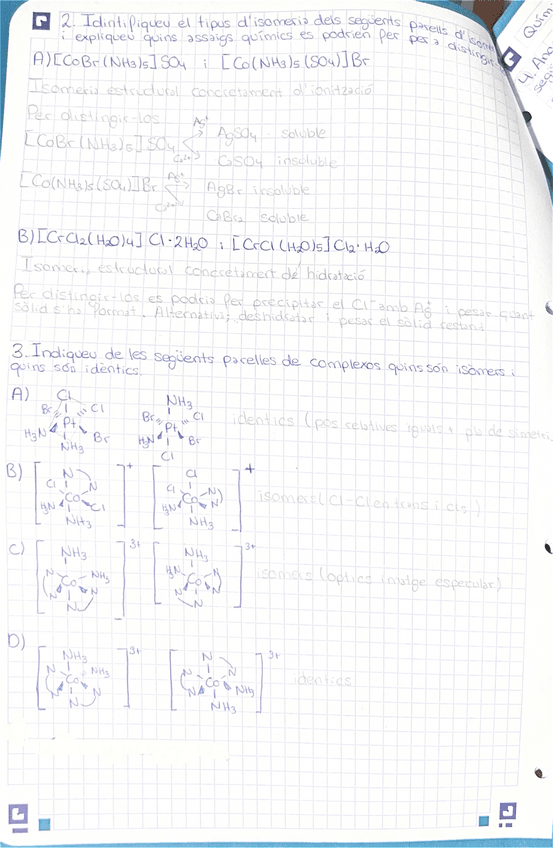 2. Idintifiqueu el tipus d'isomeria dels següents parells d'isom
i expliqueu quins assaigs químics es podrien fer per a distingir
A) [CoBr(NH3)5]SO4 i [Co(NH3)5(SO4)]Br
Isomeria estructural concretament d'ionització
Per distingir-los
Ag+
[CoBr(NH3)5]SO4 AgSO4 soluble
Ca2+ CaSO4 insoluble
[Co(NH3)5(SO4)]Br Ag+ AgBr insoluble
Ca2+
CaBr2 soluble
B) [CrCl2(H2O)4]Cl·2H2O i [CrCl(H2O)5]Cl2·H2O
Isomeria estructural concretament de hidratació
Per distingir-los es podria fer precipitar el Cl- amb Ag+ i pesar quant
sòlid s'ha format. Alternativa; deshidratar i pesar el sòlid restant
3. Indiqueu de les següents parelles de complexos quins són isòmers i
quins són idèntics.
A)
Cl Br Cl Pt H3N Br NH3
NH3 Br Cl Pt H3N Br Cl
identics (pos relatives iguals + pla de simetri
B)
N Cl N Co H3N Cl NH3 +
Cl Cl N Co H3N N NH3 +
isomers (Cl-Cl en trans i cis)
C)
NH3 N NH3 Co N N N 3+
NH3 H3N N Co N N N 3+
isomers (optics imatge especular)
D)
NH3 N NH3 Co N N N 3+
N N N Co N NH3 NH3 3+
identics
Quím
4. Ano
segü